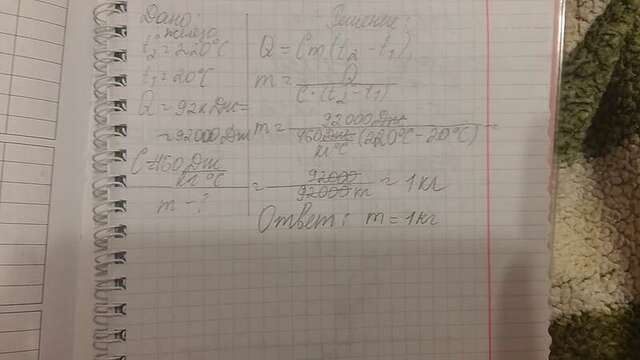 Дано:
железо
t₂ = 220°C
t₁ = 20°C
Q = 92кДж=
=92000Дж
C=460 Дж/кг°C
m - ?
Решение:
Q = Cm(t₂ - t₁),
m = Q/C·(t₂-t₁)
m = 92000Дж/460Дж/кг°C (220°C - 20°C) =
= 92000/92000 кг = 1кг
Ответ: m = 1кг